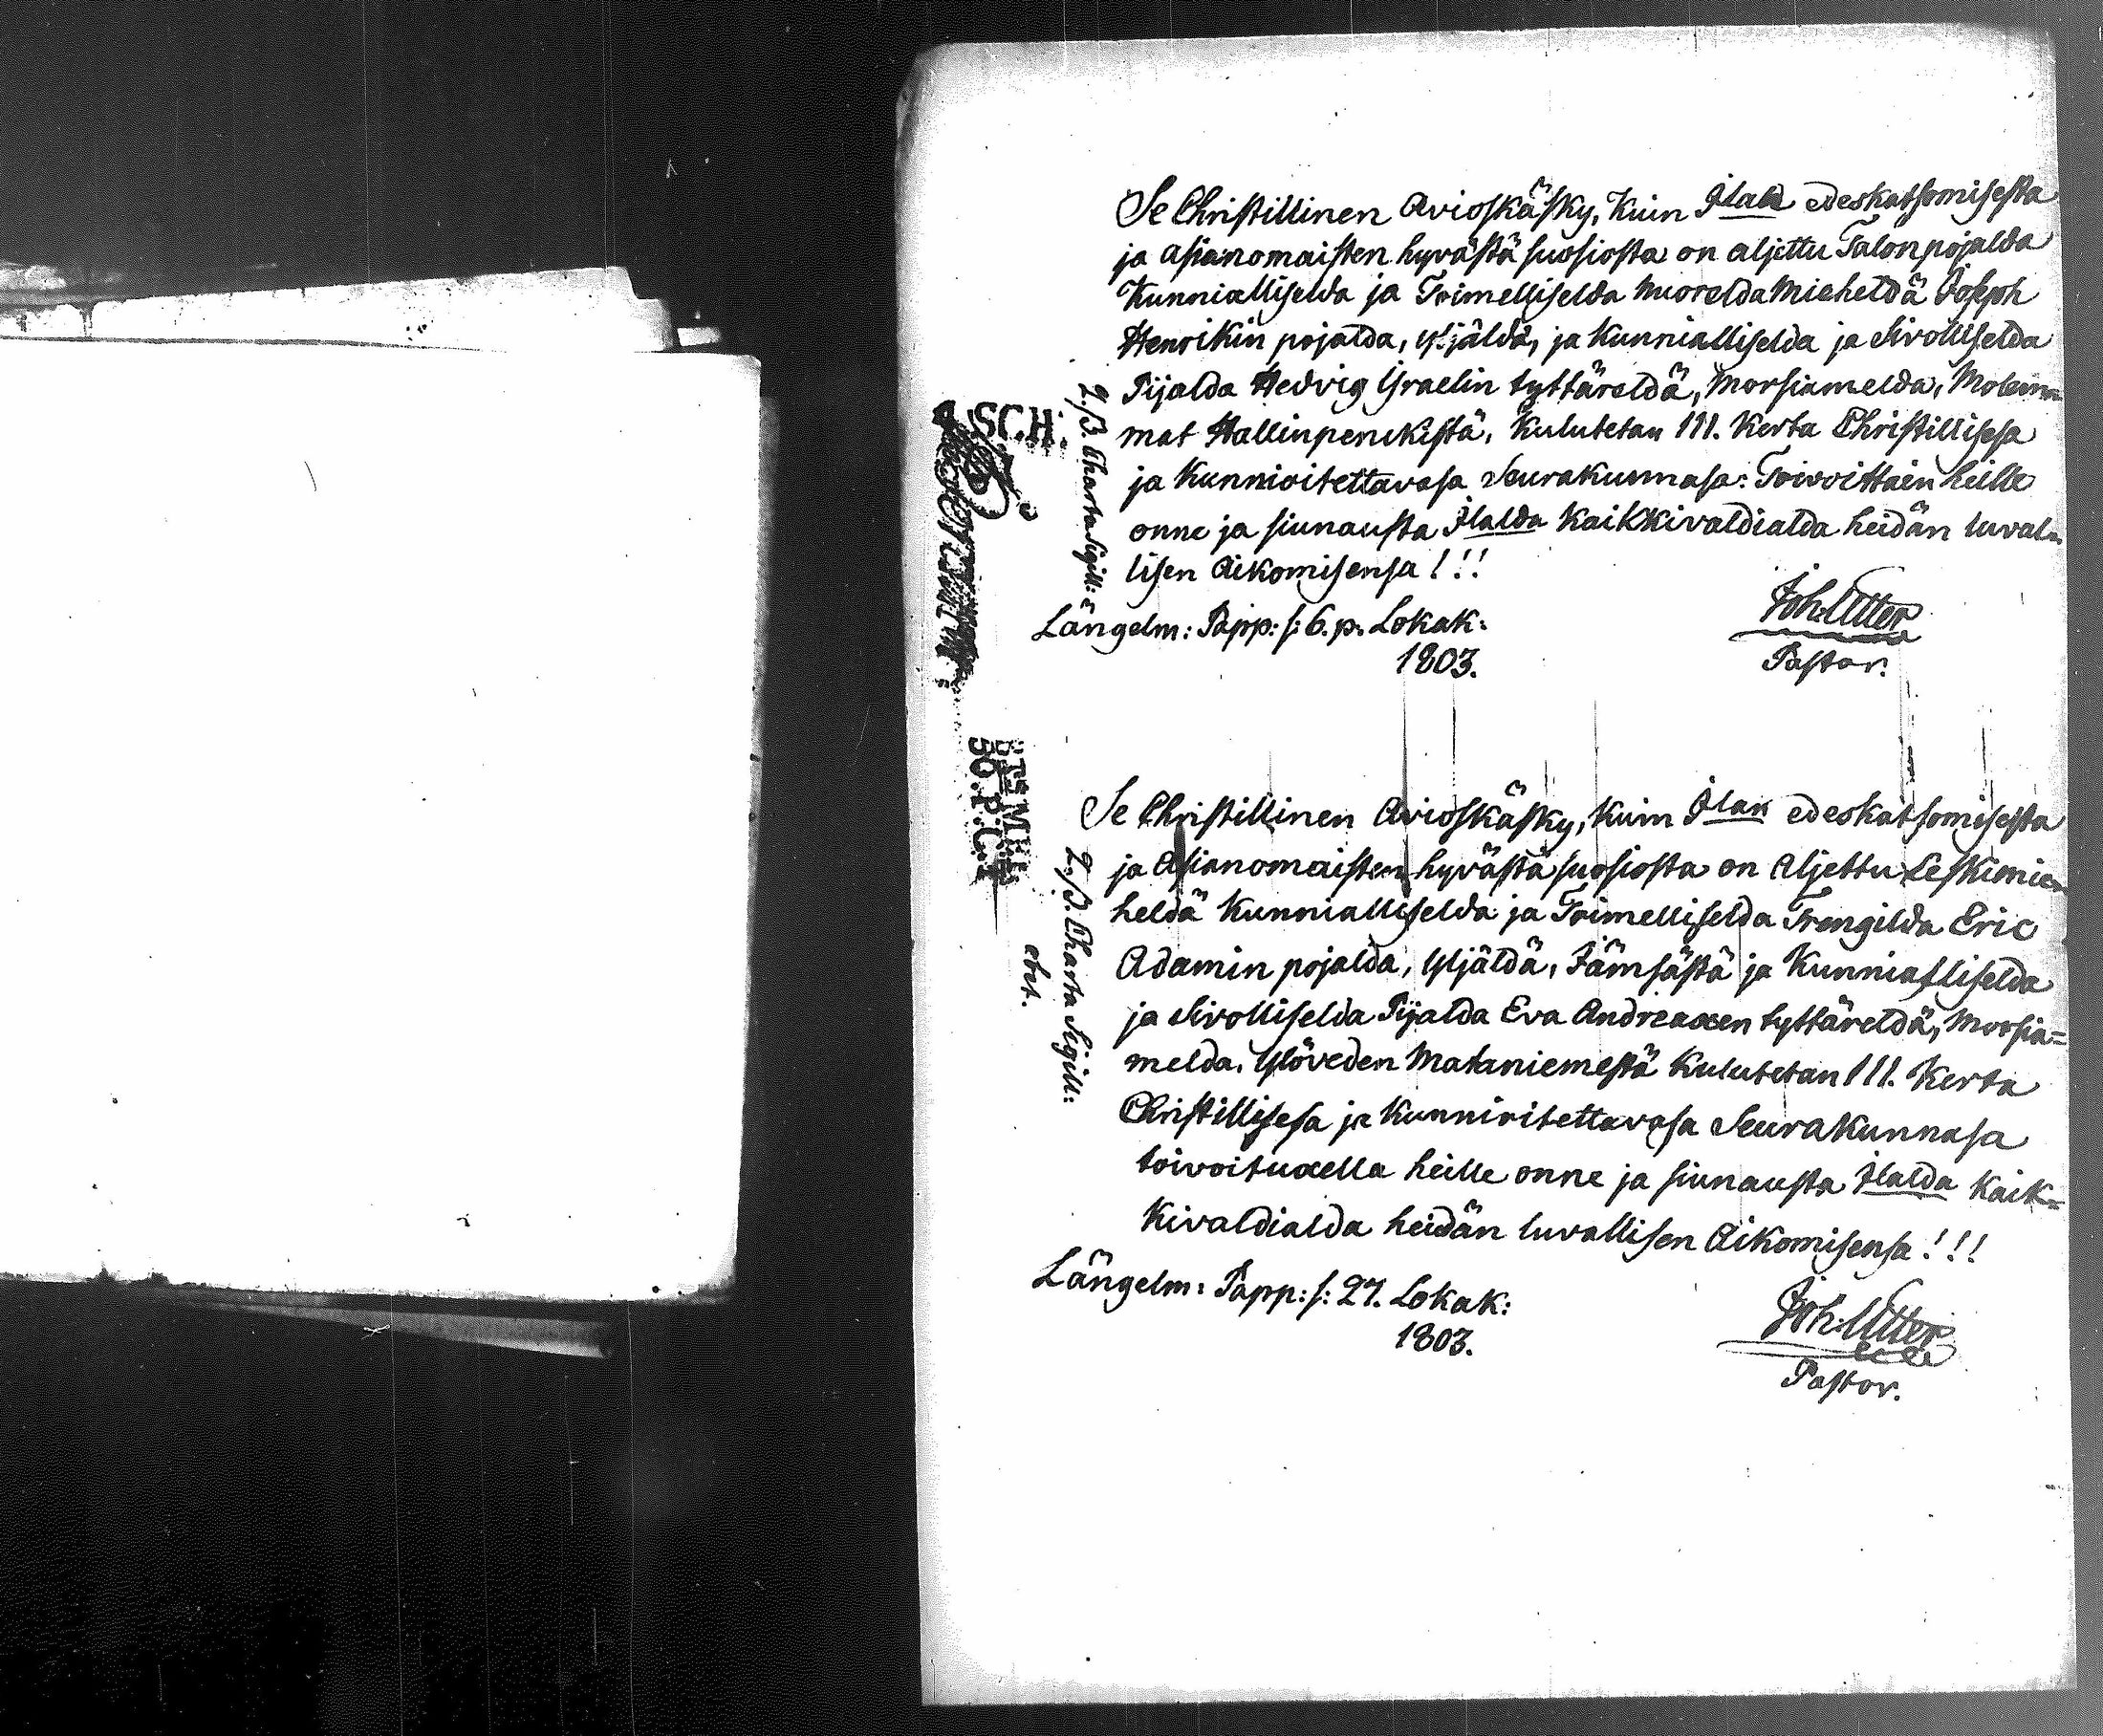 Se Christillinen Avioskäsky, kuin Jlale edeskatsomisesta
ja asianomaisten hyvästä suosiosta on aljettu Talonpojalda
Kunnialliselda ja Toimelliselda Nuorelda Mieheldä Joseph
Henrikin pojalda, Yljäldä, ja Kunnialliselda ja Sivolliselda
Pijalda Hedvig Israelin tyttäreldä, Morsiamelda, Molem-
mat Hallinpenikistä, Kulutetan III. Kerta Christillisesa
ja Kunnioitettavasa Seurakunnasa: Toivoittain heille
onne ja siunausta Jlalda Kaikkivaldialda heidän luval-
lisen Aikomisensa!!!
Längelm: Papp: s: 6. p. Lokak:
1803.
Joh: Utter
Pastor.
2. ß. Charta Sigill:
SCH.
Se Christillinen Avioskäsky, kuin Jlan edeskatsomisesta
ja Asianomaisten hyvästä suosiosta on Aljettu Leskimie-
heldä Kunnialliselda ja Toimelliselda Trengilda Eric
Adamin pojalda, Yljäldä, Jämsästä ja Kunnialliselda
ja Sivolliselda Pijalda Eva Andreaxen tyttäreldä, Morsia=
melda, Ylöveden Mataniemestä Kulutetan III. Kerta
Christillisesa ja Kunnioitettavasa Seurakunnasa
toivoituxella heille onne ja siunausta Jlalda Kaik=
Kivaldialda heidän luvallisen Aikomisensa!!!
Längelm: Papp: s: 27. Lokak:
1803.
Joh: Utter
Pastor.
2. ß. Charta Sigill: